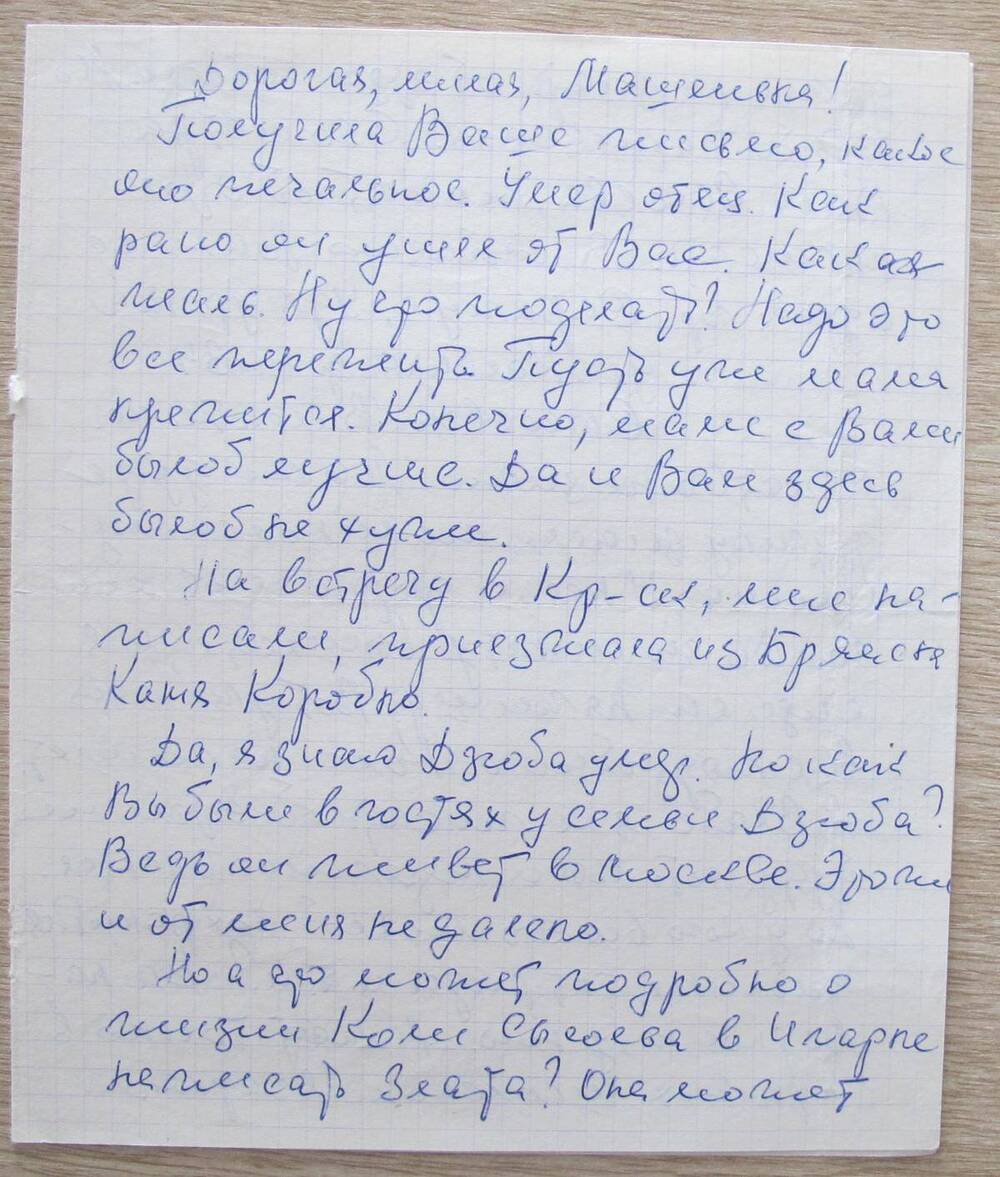 Дорогая, милая, Машенька!
Получила Ваше письмо, какое
оно печальное. Умер отец. Как
рано он ушел от Вас. Какая
жаль. Ну что поделать? Надо это
все пережить. Пусть уж мама
крепится. Конечно, маме с Вами
было б лучше. Да и Вам здесь
было б не хуже.
На встречу в Кр-ск, мне на-
писали, приезжала из Брянска
Катя Коробко.
Да, я знаю Дзюба умер. Но как
Вы были в гостях у семьи Дзюба?
Ведь он живет в Москве. Это ж
и от меня не далеко.
Но а что может подробно о
жизни Коли Сысоева в Игарке
написать Злата? Она может